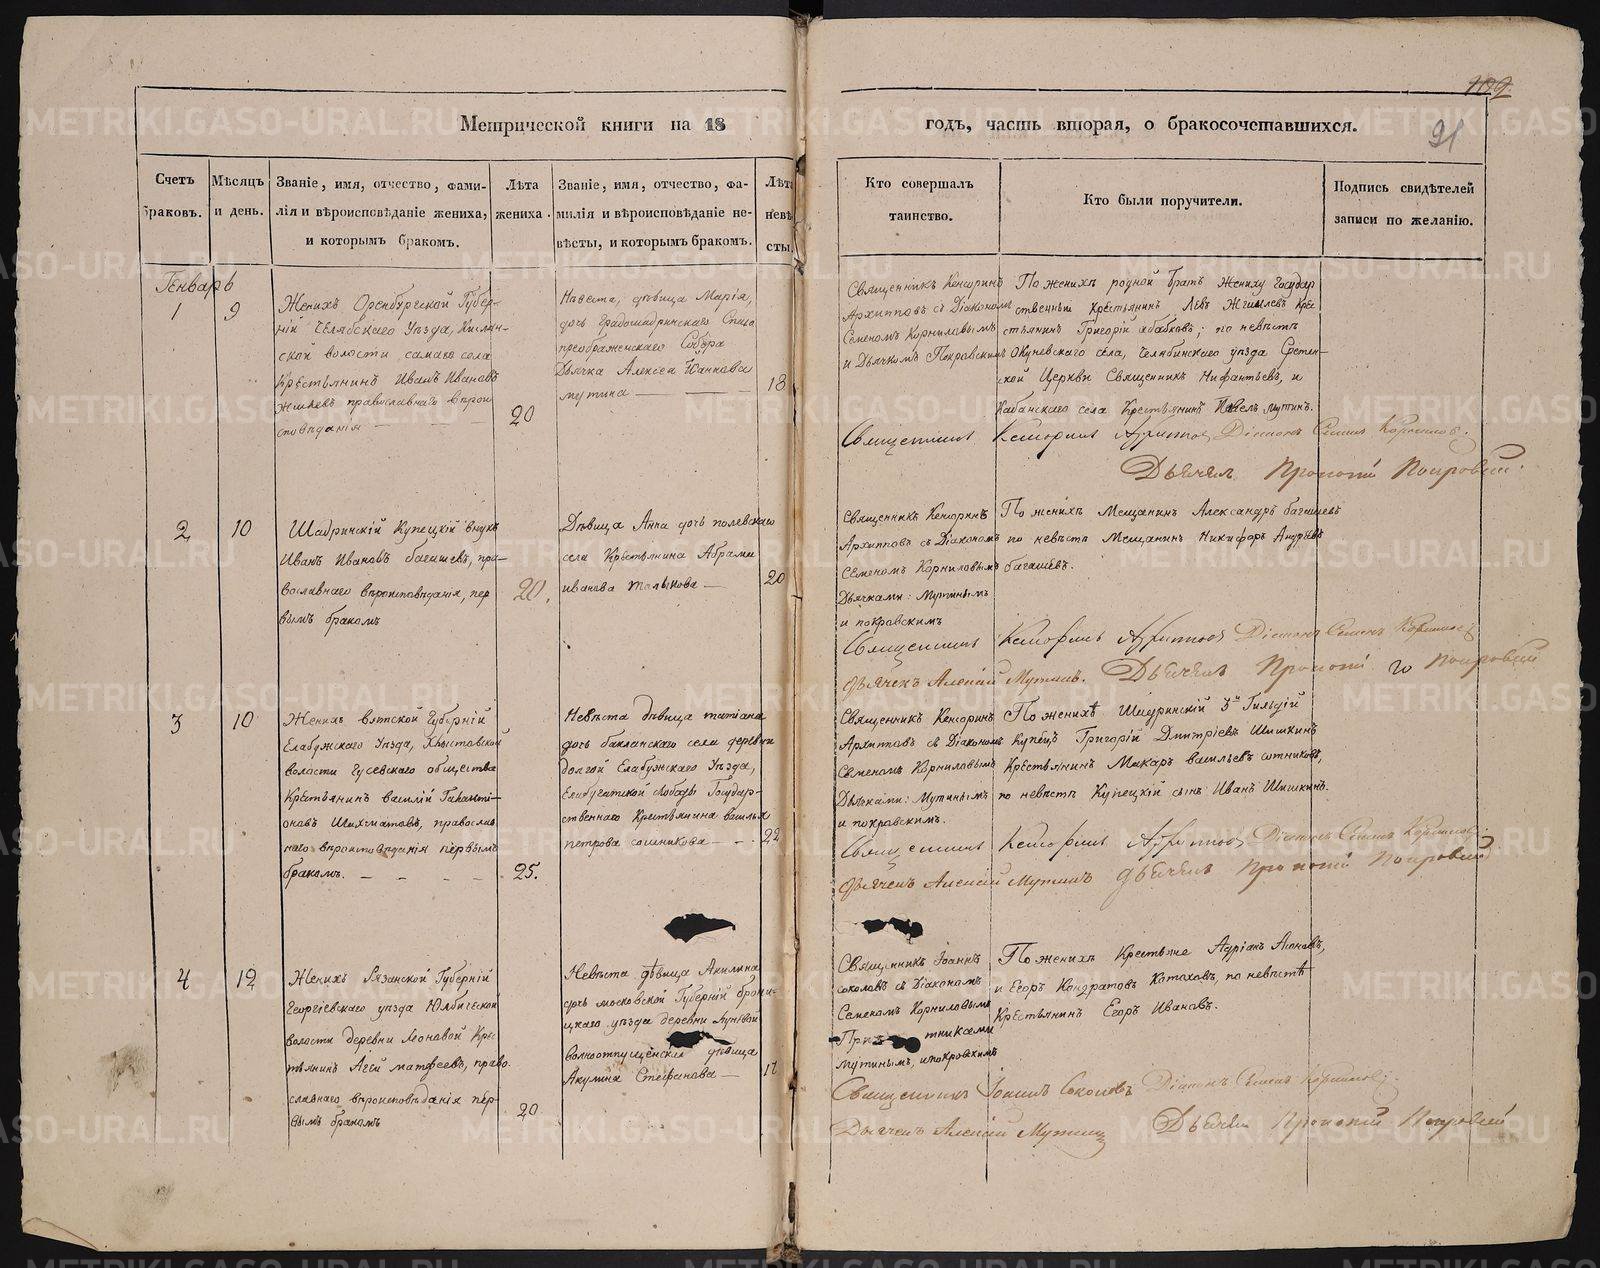 102
91
Метрической книги на 18
годъ, часть вторая, о бракосочетавшихся.
Счетъ браковъ.
Мѣсяцъ и день.
Званіе, имя, отчество, фами-
лія и вѣроисповѣданіе жениха,
и которымъ бракомъ.
Лѣта
жениха.
Званіе, имя, отчество, фа-
милія и вѣроисповѣданіе не-
вѣсты, и которымъ бракомъ.
Лѣта
невѣ
сты
Кто совершалъ
таинство.
Кто были поручители.
Подпись свидѣтелей
записи по желанію.
Генварь
1
9
Женихъ Оренбургской Губер-
ніи Челябскаго Уѣзда,
ской волости самаго села
Крестьянинъ Иванъ Ивановъ
православнаго вѣрои
сповѣданія
20
Невеста, дѣвица Марія,
дочь Градошадринскаго Спасо
преображенскаго Собора
Дьячка Алексѣя
мутина
18
Священникъ Кенсоринъ
Архипповъ съ Діакономъ
Семеномъ Корниловымъ
и Дьячкомъ Покровскимъ
По женихѣ родной братъ жениху Государ
ственный крестьянинъ Левъ Крес
стьянинъ Григорій по невѣстѣ
Окуневскаго села, Челябинскаго уѣзда Сретен-
ской Церкви Священникъ Нифантьевъ, и
Кабанскаго села Крестьянинъ Павелъ мутинъ.
Священникъ Кенсоринъ Архиповъ Діаконъ Семенъ Корниловъ.
Дьячекъ Прокопій Покровскій.
2
10
Шадринскій Купецкій внукъ
Иванъ Ивановъ багашевъ, пра-
вославнаго вѣроисповѣданія, пер
вымъ бракомъ
20.
Дѣвица Анна дочь полевскаго
села Крестьянина Абрама
иванова
20
Священникъ Кенсоринъ
Архипповъ съ Діакономъ
Семеномъ Корниловымъ
Дьячками: Мутинымъ
и покровскимъ
По женихѣ Мещанинъ Александръ багашевъ
по невѣстѣ Мещанинъ Никифоръ Андреевъ
багашевъ.
Священникъ Кенсоринъ Архиповъ Діаконъ Семенъ Корниловъ
дьячекъ Алексій Мутинъ. Дьячекъ Прокопій Покровскій
3
10
Женихъ Вятской Губерній
Елабужскаго Уѣзда,
волости Гусевскаго общества
Крестьянинъ василій
оновъ православ
наго вѣроисповѣданія первымъ
бракомъ.
25.
Невѣста дѣвица татіана
дочь села деревни
долгой Елабужскаго Уѣзда,
Государ-
ственнаго Крестьянина василья
петрова сотникова
22
Священникъ Кенсоринъ
Архипповъ съ Діакономъ
Семеномъ Корниловымъ
Дьячками: Мутинымъ
и покровскимъ.
По женихѣ Шадринскій 3й Гильдій
Купецъ Григорій Дмитріевъ Шишкинъ
Крестьянинъ Макаръ васильевъ сотниковъ,
по невѣстѣ Купецкій сынъ Иванъ Шишкинъ.
Священникъ Кенсоринъ Архиповъ Діаконъ Семенъ Корниловъ.
дьячекъ Алексій Мутинъ дьячекъ Прокопій Покровскій
4
12
Женихъ Рязанской Губерній
Георгіевскаго уѣзда
волости деревни Леоновой Крес
тьянинъ Агей матфеевъ, право
славнаго вѣроисповѣданія пер-
вымъ бракомъ
20
Невѣста дѣвица Акилина
дочь московской Губерній брони-
цкаго уѣзда деревни
дѣвица
Акулина Стефанова
17
Священникъ Іоаннъ
соколовъ съ Діакономъ
Семеномъ Корниловымъ
мутинымъ, ипокровскимъ
По женихѣ Крестьяне Адріанъ
и Егоръ Кондратовъ по невѣстѣ
Крестьянинъ Егоръ Ивановъ.
Священникъ Іоаннъ Соколовъ Діаконъ Семенъ Корниловъ.
Дьячекъ Алексій Мутинъ Дьячекъ Прокопій Покровскій
METRIKI.GASO-URAL.RU